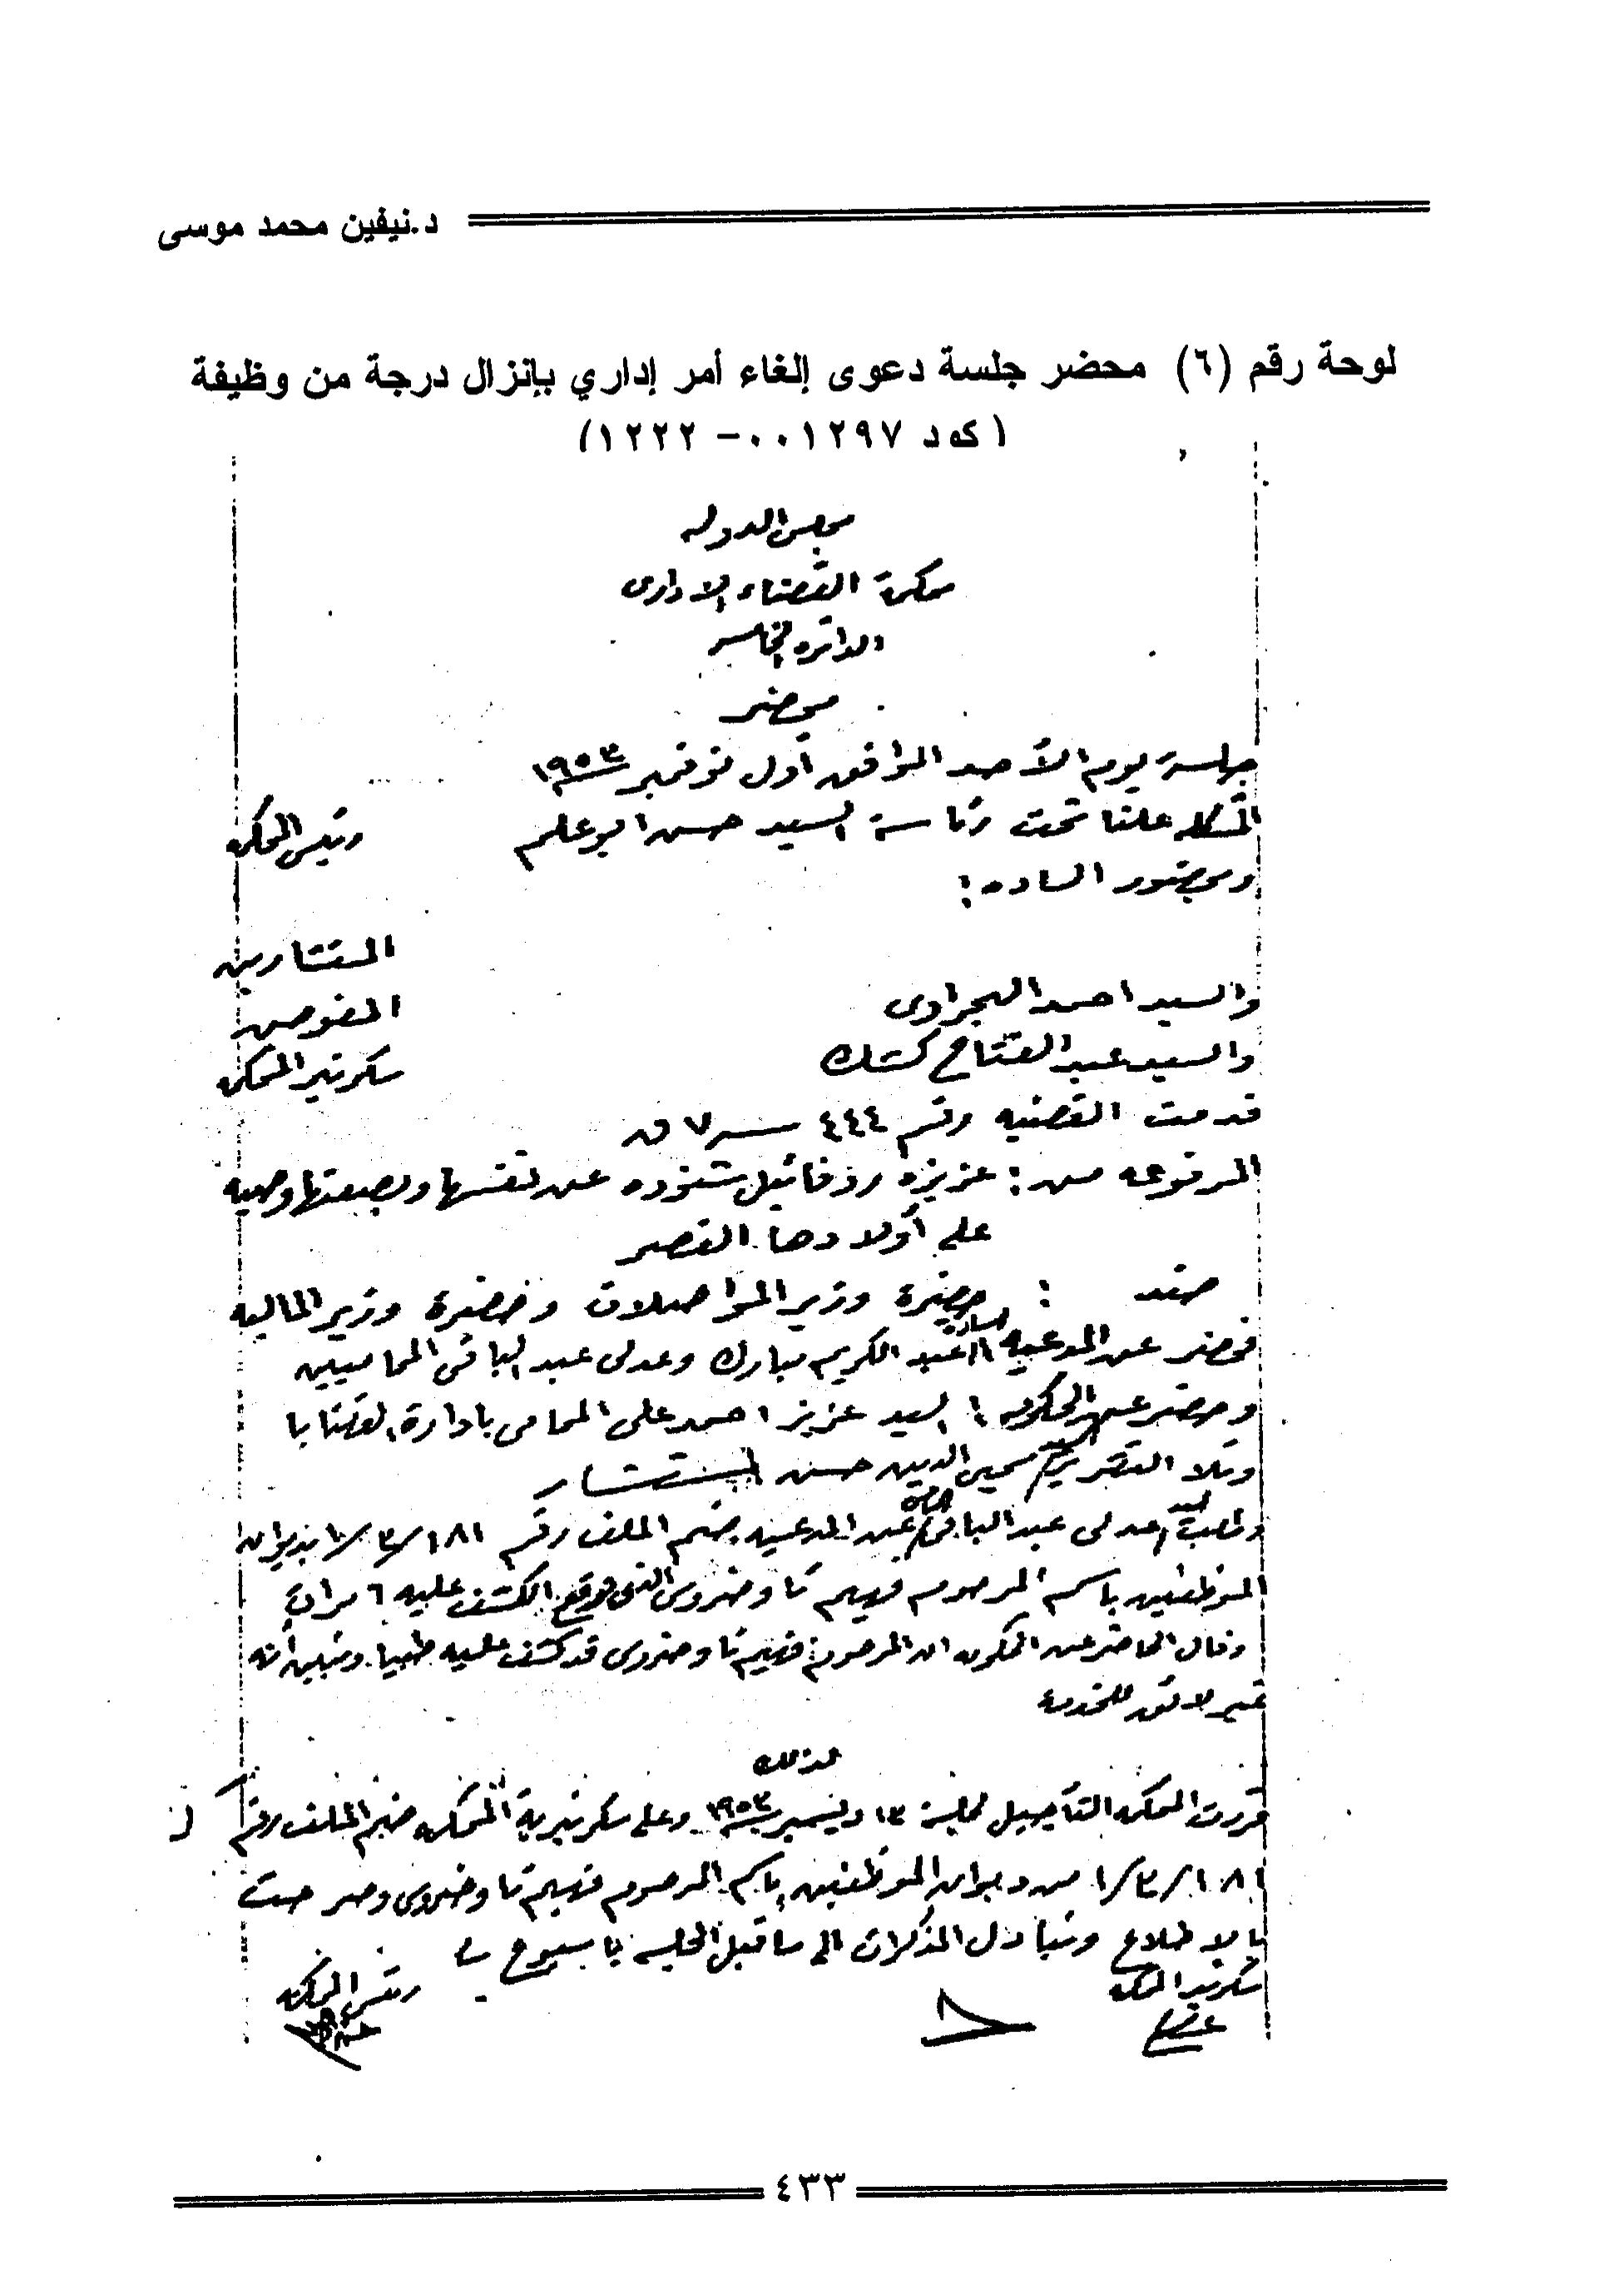 د.نيفين محمد موسى
لوحة رقم (٦) محضر جلسة دعوى إلغاء أمر إداري بإنزال درجة من وظيفة
(كود ٠٠١٢٩٧-١٢٢٢)
مجلس الدوله
محكمة القضاء الادارى
الدائره الخامسه
محضر
جلسة يوم الأحد الموافق أول نوفمبر ١٩٥٣
المشكله علنا تحت رئاسة السيد حسن ابو علم رئيس المحكمه
وبحضور الساده :
المستشارين
والسيد احمد البجراوى المفوض
والسيد عبد الفتاح كشك سكرتير المحكمه
قدمت القضيه رقم ٤٤٤ سنه ٧ ق
المرفوعه من : عزيزه روفائيل شنوده عن نفسها وبصفتها وصيه
على أولادها القصر
ضد : حضرة وزير المواصلات وحضرة وزير الماليه
فحضر عن المدعيه الساده عبد الكريم مبارك وعدلى عبد الباقى المحاميين
وحضر عن الحكومه السيد عزيز احمد على المحامى بادارة القضايا
وتلا التقرير السيد محيى الدين حسن المستشار
وطلب السيد عدلى عبد الباقى عن المدعيه بضم الملف رقم ١٨١/٣/١ بديوان
الموظفين باسم المرحوم فهيم تاوضروس الذى توقع الكشف عليه ٦ مرات
وقال الحاضر عن الحكومه ان المرحوم فهيم تاوضروس قد كشف عليه طبيا وتبين أنه
غير لائق للخدمه
لذلك
قررت المحكمه التأجيل لجلسة ١٣ ديسمبر سنة ١٩٥٣ وعلى سكرتيرية المحكمه ضم الملف رقم
١٨١/٣/١ من ديوان الموظفين باسم المرحوم فهيم تاوضروس وصرحت
بالاطلاع وتبادل المذكرات الى ما قبل الجلسه باسبوع
سكرتير المحكمه رئيس المحكمه
٤٣٣